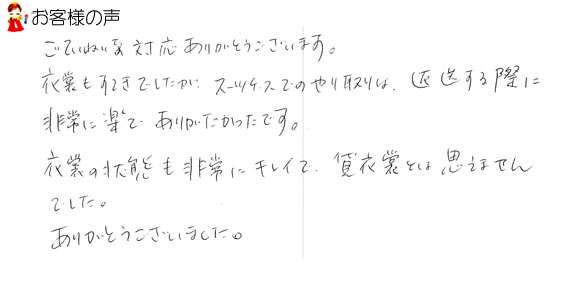 お客様の声
ごていねいな対応ありがとうございます。
衣裳もすてきでしたが、スーツケースでのやり取りは、返送する際に
非常に楽で ありがたかったです。
衣裳の状態も非常にキレイで、貸衣裳とは思えません
でした。
ありがとうございました。